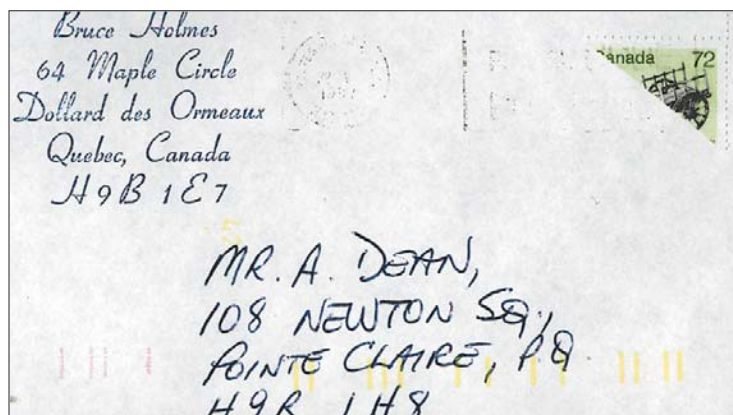 Bruce Holmes
64 Maple Circle
Dollard des Ormeaux
Quebec, Canada
H9B 1E7
Canada 72
MR. A. DEAN,
108 NEWTON SQ.,
POINTE CLAIRE, P.Q.
H9R 1H8